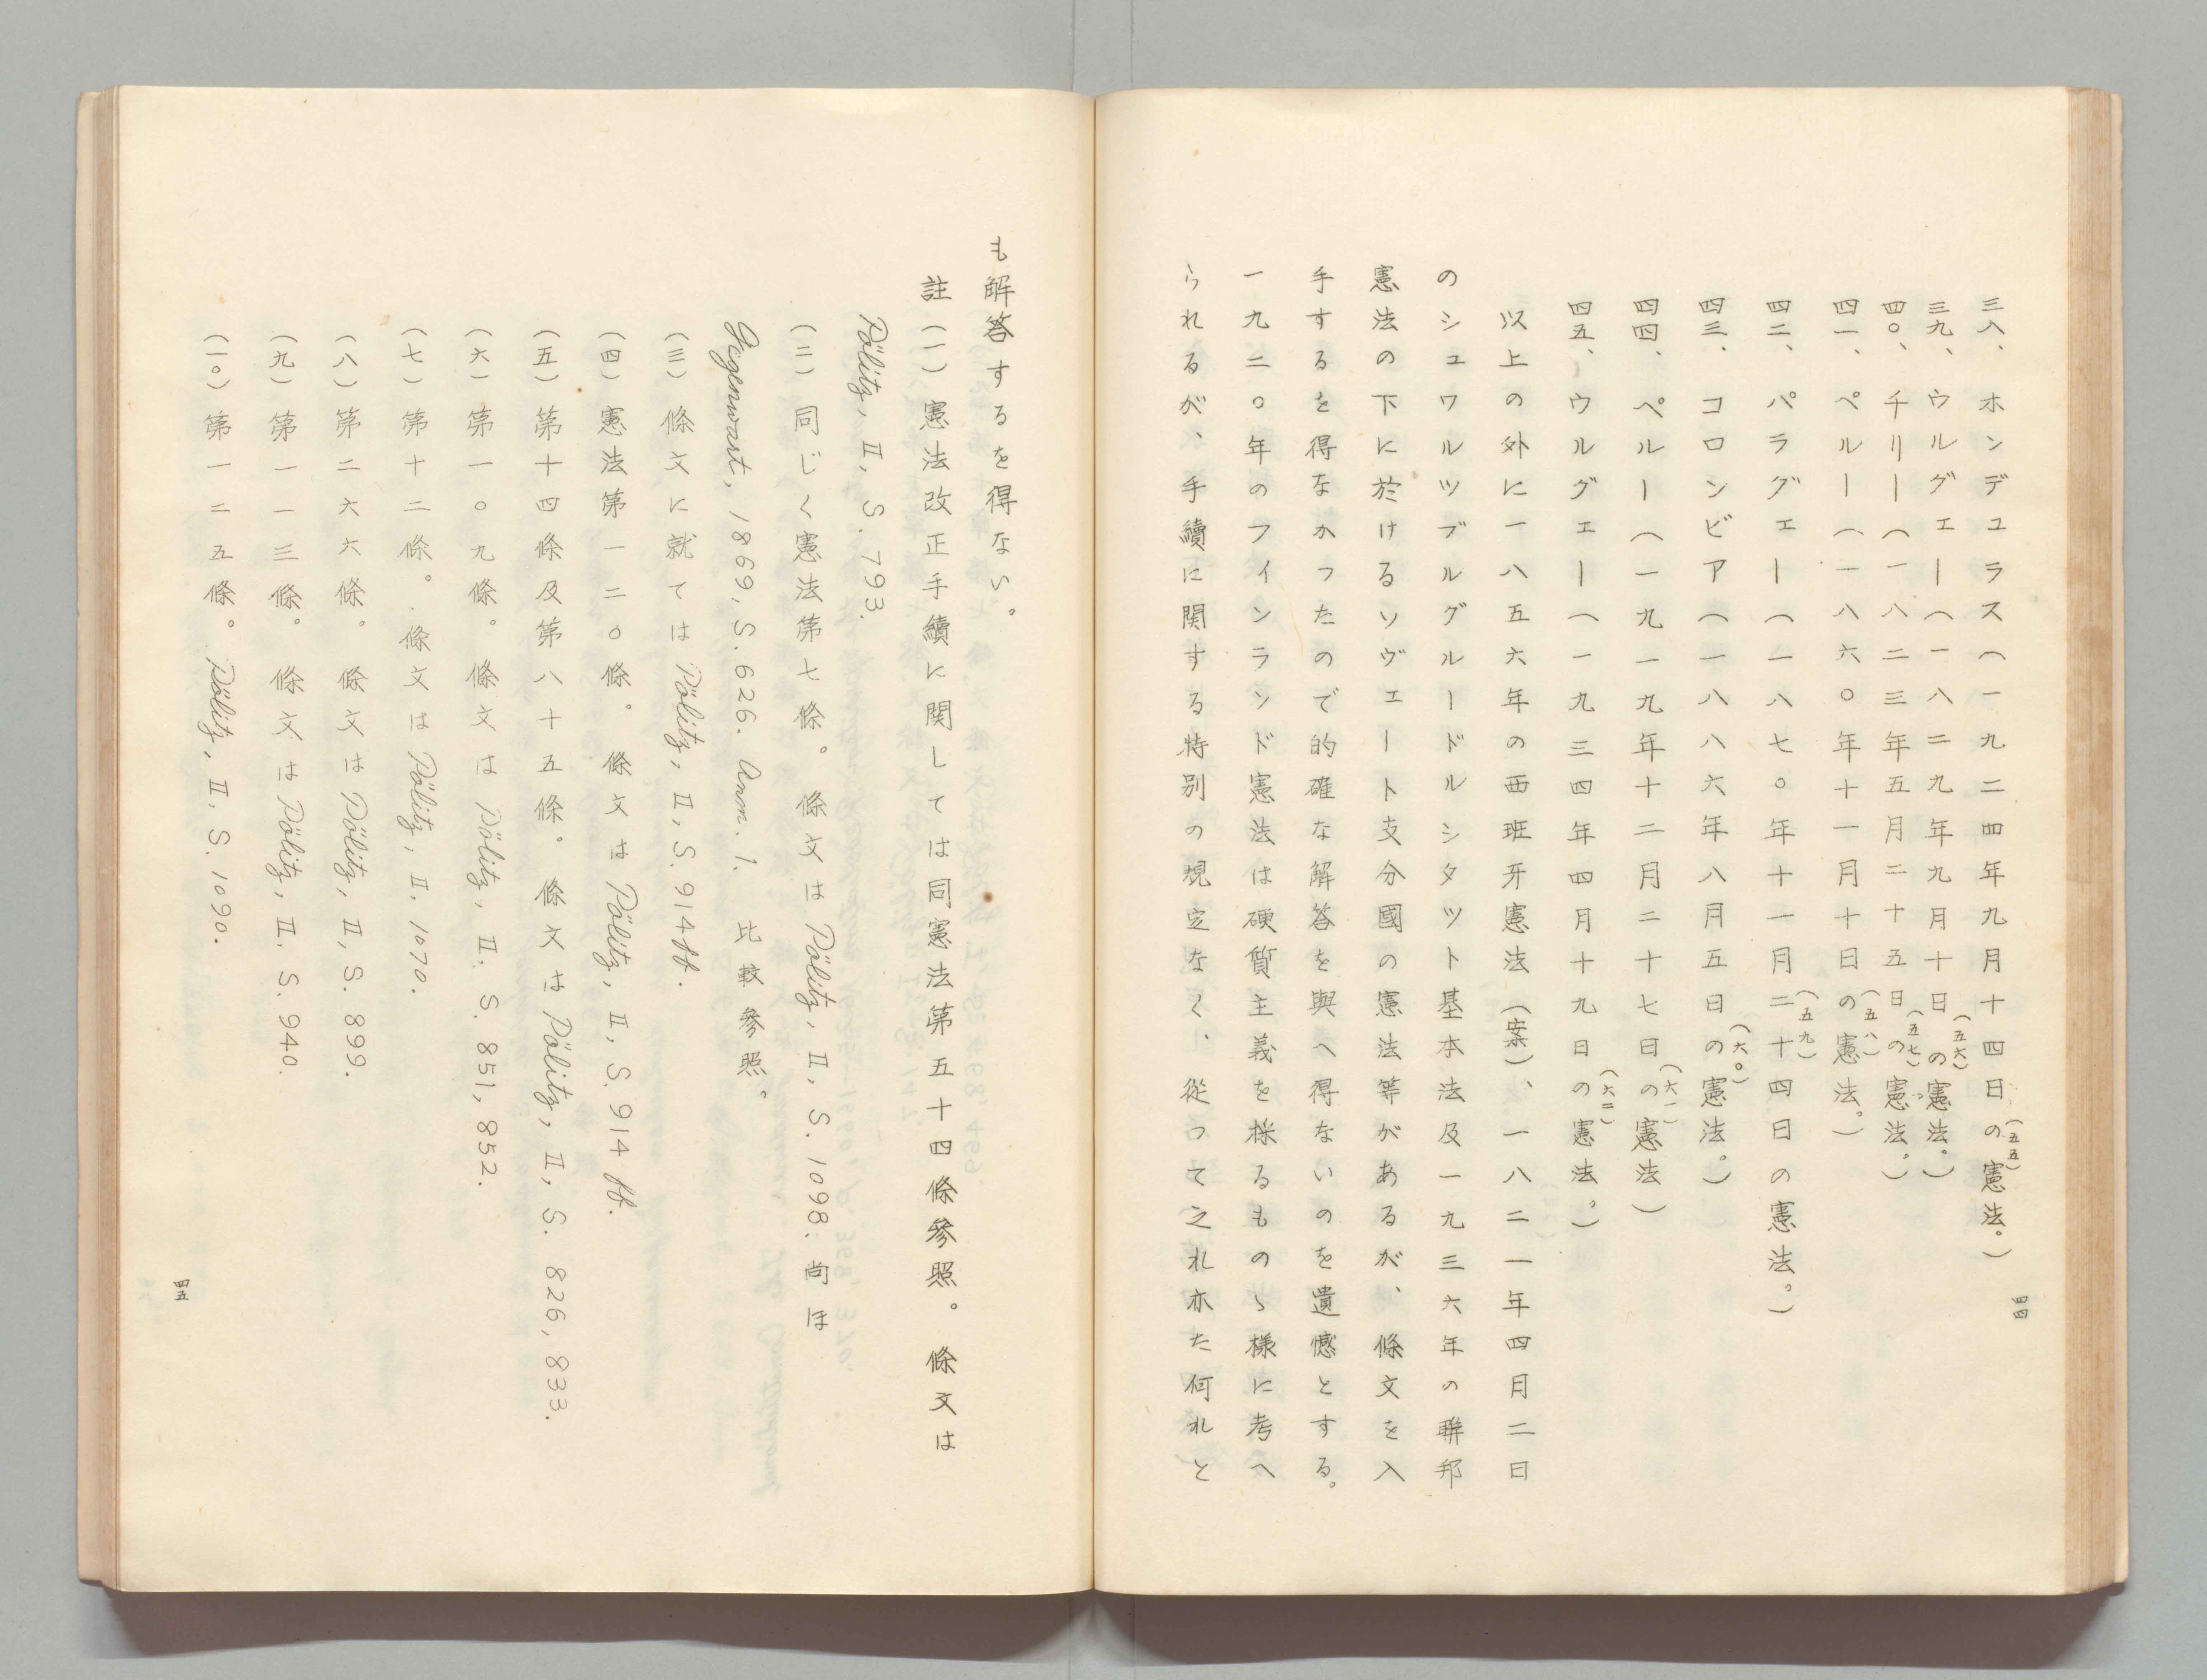 三八、ホンデュラス（一九二四年九月十四日の（五五）憲法。）
三九、ウルグェー（一八二九年九月十日の（五六）憲法。）
四〇、チリー（一八二三年五月二十五日の（五七）憲法。）
四一、ペルー（一八六〇年十一月十日の（五八）憲法。）
四二、パラグェー（一八七〇年十一月二十四日の（五九）憲法。）
四三、コロンビア（一八八六年八月五日の（六〇）憲法。）
四四、ペルー（一九一九年十二月二十七日の（六一）憲法）
四五、ウルグェー（一九三四年四月十九日の（六二）憲法。）
以上の外に一八五六年の西班牙憲法（案）、一八二一年四月二日
のシュワルツブルグルードルシタット基本法及一九三六年の聯邦
憲法の下に於けるソヴェート支分國の憲法等があるが、條文を入
手するを得なかったので的確な解答を與へ得ないのを遺憾とする。
一九二〇年のフィンランド憲法は硬質主義を採るものゝ様に考へ
られるが、手續に関する特別の規定なく、従って之れ亦た何れと
四四
も解答するを得ない。
註（一）憲法改正手續に関しては同憲法第五十四條参照。條文は
Pölitz, II, S. 793.
（二）同じく憲法第七條。條文はPölitz, II, S. 1098. 尚ほ
Gegenwart, 1869, S. 626. Anm. 1. 比較参照。
（三）條文に就てはPölitz, II, S. 914ff.
（四）憲法第一二〇條。條文はPölitz, II, S. 914 ff.
（五）第十四條及第八十五條。條文はPölitz, II, S. 826, 833.
（六）第一〇九條。條文はPölitz, II. S. 851, 852.
（七）第十二條。條文はPölitz, II. 1070.
（八）第二六六條。條文はPölitz, II, S. 899.
（九）第一一三條。條文はPölitz, II. S. 940.
（一〇）第一二五條。Pölitz, II. S. 1090.
四五